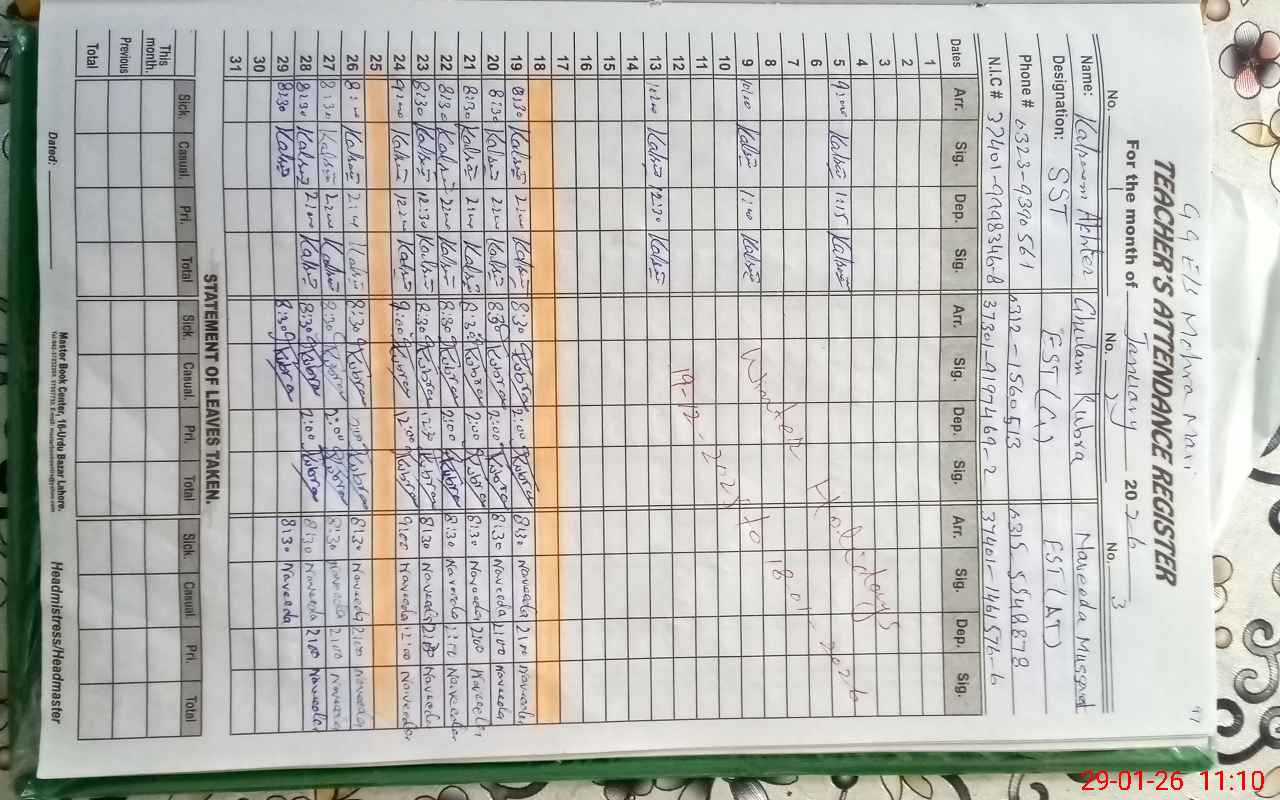 GGE/S Mohra Mari
97
TEACHER'S ATTENDANCE REGISTER
For the month of January 2026
No. 1 No. 2 No. 3
Name: Kalsoom Akhter Ghulam Kubra Naveeda Mussarat
Designation: SST EST (G) EST (AT)
Phone # 0323-9390561 0312-1560513 0315 5548878
N.I.C # 37401- 37301-9197469-2 37401-1461576-6
Dates Arr. Sig. Dep. Sig. Arr. Sig. Dep. Sig. Arr. Sig. Dep. Sig.
1
2
3
4
5 9:00 Kalsoom 11:15 Kalsoom
6
7
8
9 10:10 Kalsoom 11:00 Kalsoom
10
11
12
13 Kalsoom 12:30 Kalsoom
14
15
16
17
18
Winter Holidays
19-12-2025 to 18-01-2026
19 8:30 Kalsoom 2:00 Kalsoom 8:30 Kubra 2:00 Kubra 8:30 Naveeda 2:00 Naveeda
20 8:30 Kalsoom 2:00 Kalsoom 8:30 Kubra 2:00 Kubra 8:30 Naveeda 2:00 Naveeda
21 8:30 Kalsoom 2:00 Kalsoom 8:30 Kubra 2:00 Kubra 8:30 Naveeda 2:00 Naveeda
22 8:30 Kalsoom 2:00 Kalsoom 8:30 Kubra 2:00 Kubra 8:30 Naveeda 2:00 Naveeda
23 8:30 Kalsoom 12:30 Kalsoom 8:30 Kubra 12:30 Kubra 8:30 Naveeda Naveeda
24 9:00 Kalsoom 12:00 Kalsoom 9:00 Kubra 12:00 Kubra 9:00 Naveeda 12:00 Naveeda
25
26 8:30 Kalsoom 2:00 Kalsoom 8:30 Kubra 2:00 Kubra 8:30 Naveeda 2:00 Naveeda
27 8:30 Kalsoom 2:00 Kalsoom 8:30 Kubra 2:00 Kubra 8:30 Naveeda 2:00 Naveeda
28 8:30 Kalsoom 2:00 Kalsoom 8:30 Kubra 2:00 Kubra 8:30 Naveeda 2:00 Naveeda
29 8:30 Kalsoom 8:30 Kubra 8:30 Naveeda
30
31
STATEMENT OF LEAVES TAKEN.
Sick. Casual. Pri. Total Sick. Casual. Pri. Total Sick. Casual. Pri. Total
This month.
Previous
Total
Master Book Center, 16-Urdu Bazar Lahore.
Dated: Headmistress/Headmaster
29-01-26 11:10